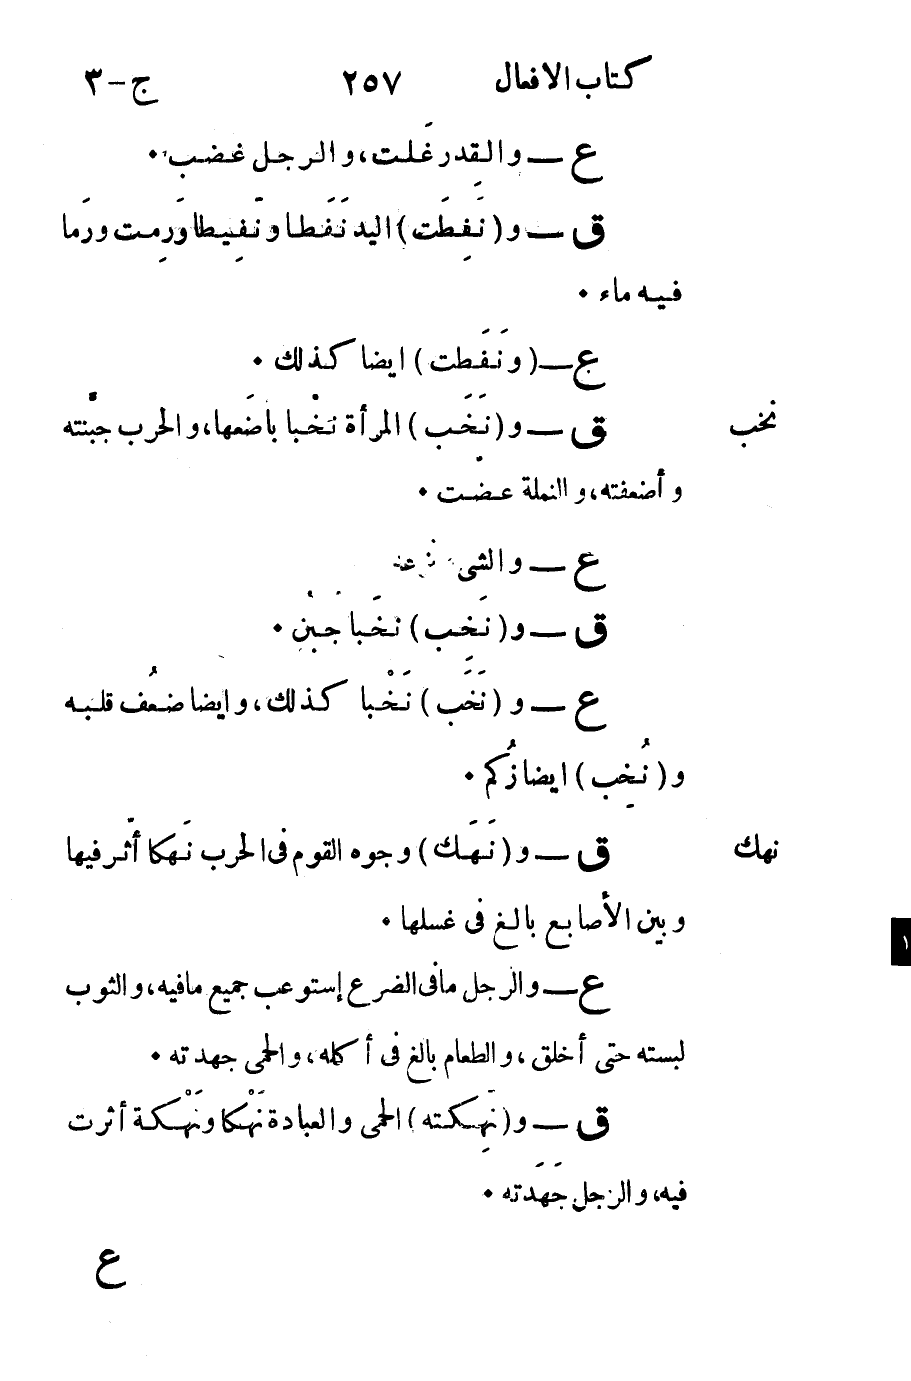 كتاب الافعال ٢٥٧ ج-٣
ع — والقِدر غَلت، والرجل غضب.
ق — و(نَفِطَت) اليد نَفَطا ونَّفِيطا وَرِمت ورَما
فيه ماء.
ع — (ونَفَطت) ايضا كذلك.
نخب ق — و(نَخَب) المرأة نخْبا باضَعها، والحرب جبّنته
وأضعفته، والنملة عضت.
ع — والشئ
ق — و(نَخِب) نخَبا جَبُن.
ع — و(نَخَب) نَخْبا كذلك، وايضا ضعُف قلبه
و(نُخِب) ايضا زُكم.
نهك ق — و(نَهَك) وجوه القوم فى الحرب نَهكا أثّر فيها
وبين الأصابع بالغ فى غسلها.
ع — والرجل مافى الضرع إستوعب جميع مافيه، والثوب
لبسته حتى أخلق، والطعام بالغ فى أكله، والحمى جهدته.
ق — و(نَهِكته) الحمى والعبادة نَهْكا ونَهْكة أثرت
فيه، والرجل جَهَدته.
ع
١